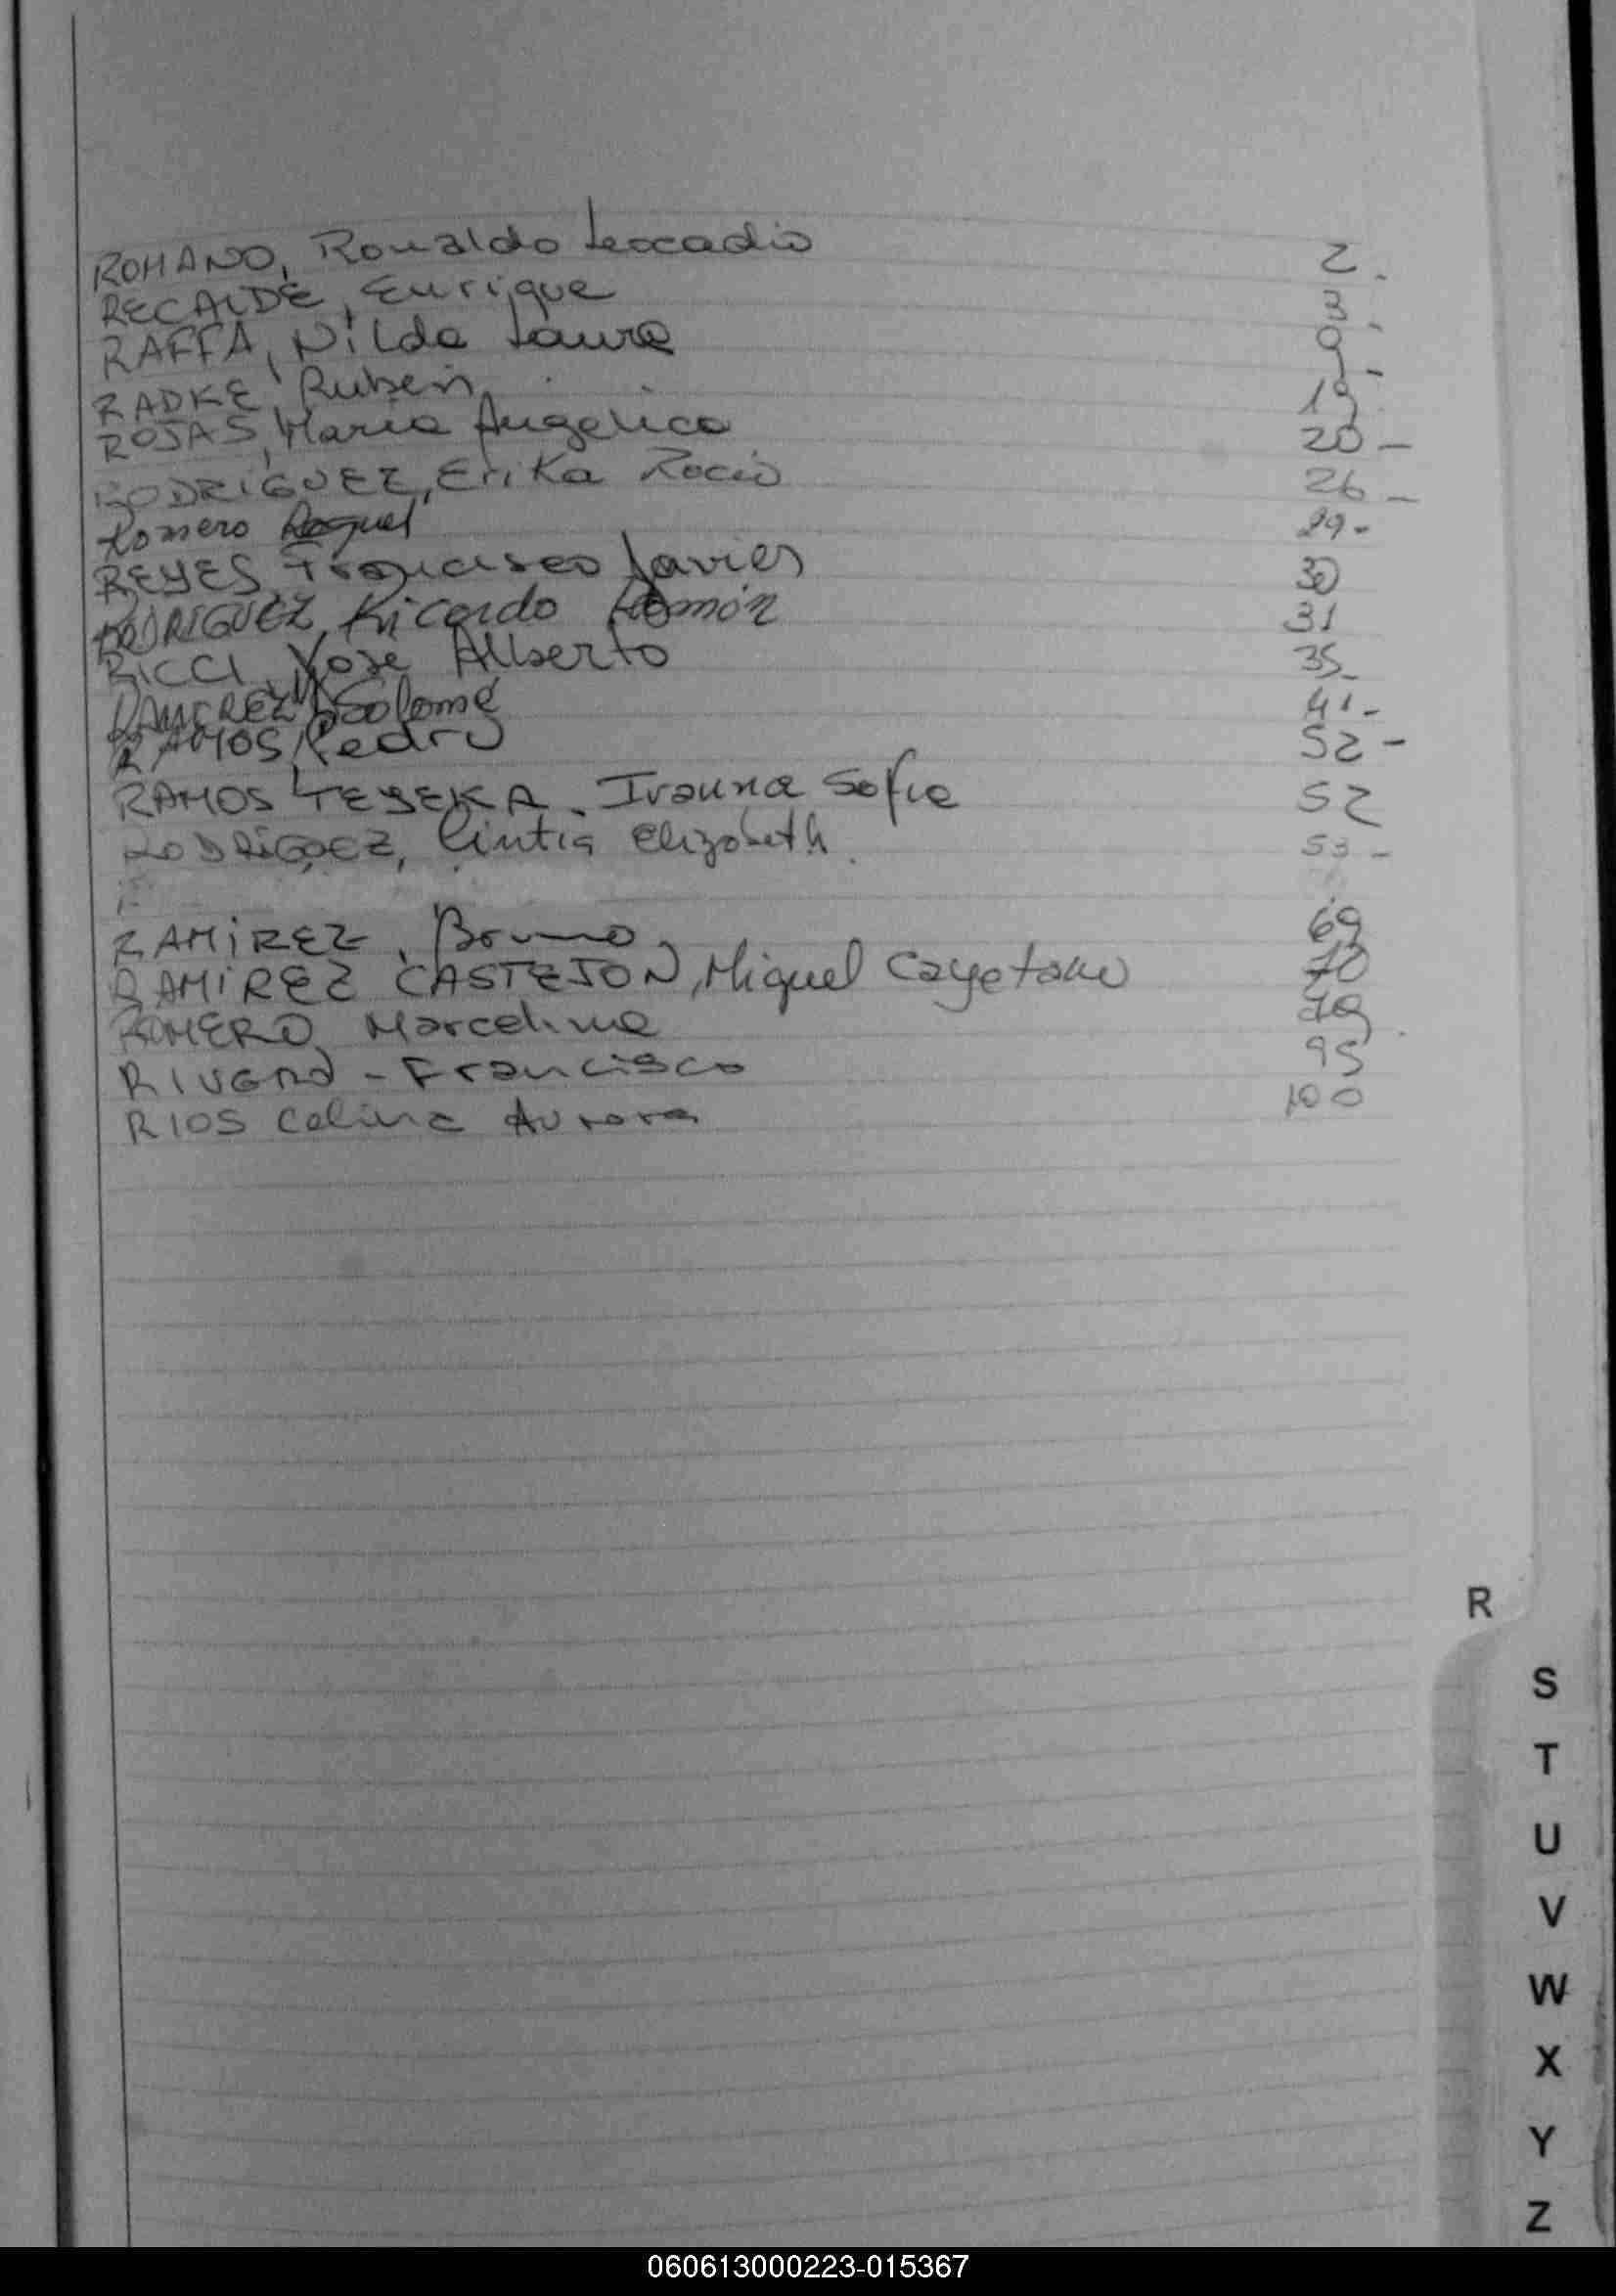 ROMANO, Ronaldo Leocadio 2.
RECALDE, Enrique 3
RAFFA, Nilda Laura 9-
RADKE, Ruben 19
ROJAS, Maria Angelica 20-
RODRIGUEZ, Erika Rocio 26-
Romero Raquel 29-
REYES Francisco Javier 30
RODRIGUEZ, Ricardo Ramón 31
RICCI, Jose Alberto 35
Salomé 41-
RAMOS, Pedro 52-
RAMOS TESEKA. Ivanna Sofia 52
RODRIGUEZ, Cintia Elizabeth. 53-
RAMIREZ, Bruno 69
RAMIREZ CASTEJON, Miguel Cayetano 70
ROMERO Marcelina 79
RIVERO - Francisco 95
RIOS Celina Aurora 100
R
S
T
U
V
W
X
Y
Z
060613000223-015367